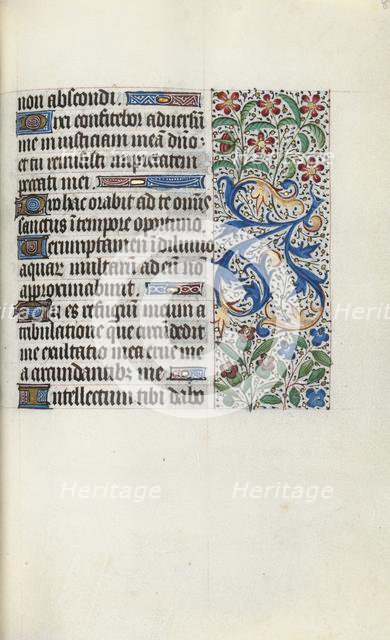 non abscondi.
Dixi confitebor adversum
me iniusticiam meā dño:
et tu remisisti impietatem
peccati mei.
Pro hac orabit ad te om̄s
sanctus ī tempore oportuno
Verumptamen ī diluvio
aquar̄ multarū ad eū nō
approximabunt.
Tu es refugiū meum a
tribulatione que circūdedit
me exultatio mea erue me
a circundantibz me
Intellectum tibi dabo
Heritage Heritage
Heritage Heritage